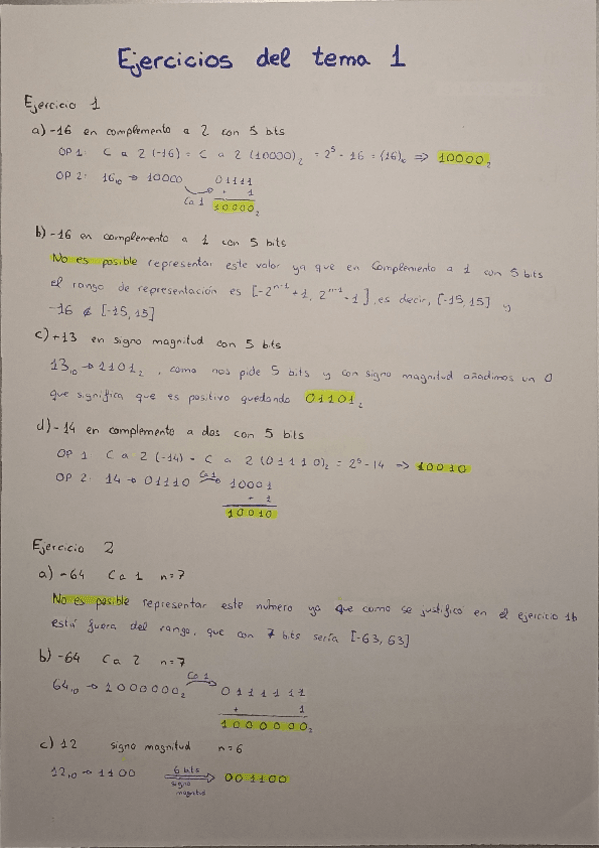 Ejercicios del tema 1
Ejercicio 1
a) -16 en complemento a 2 con 5 bits
OP 1: C a 2 (-16) = C a 2 (10000)₂ = 2⁵ - 16 = (16)₁₀ => 10000₂
OP 2: 16₁₀ → 10000 01111
+ 1
Ca 1 10000₂
b) -16 en complemento a 1 con 5 bits
No es posible representar este valor ya que en Complemento a 1 con 5 bits
el rango de representación es [-2ⁿ⁻¹+1, 2ⁿ⁻¹-1], es decir, [-15, 15] y
-16 ∉ [-15, 15]
c) +13 en signo magnitud con 5 bits
13₁₀ → 1101₂, como nos pide 5 bits y con signo magnitud añadimos un 0
que significa que es positivo quedando 01101₂
d) -14 en complemento a dos con 5 bits
OP 1 C a 2 (-14) = C a 2 (01110)₂ = 2⁵ - 14 => 10010
OP 2: 14 → 01110 Ca 1 → 10001
+ 1
10010
Ejercicio 2
a) -64 Ca 1 n=7
No es posible representar este número ya que como se justificó en el ejercicio 1b
está fuera del rango, que con 7 bits sería [-63, 63]
b) -64 Ca 2 n=7
64₁₀ → 1000000₂ Ca 1 → 0111111
+ 1
1000000₂
c) 12 signo magnitud n=6
12₁₀ → 1100 6 bits signo magnitud => 001100